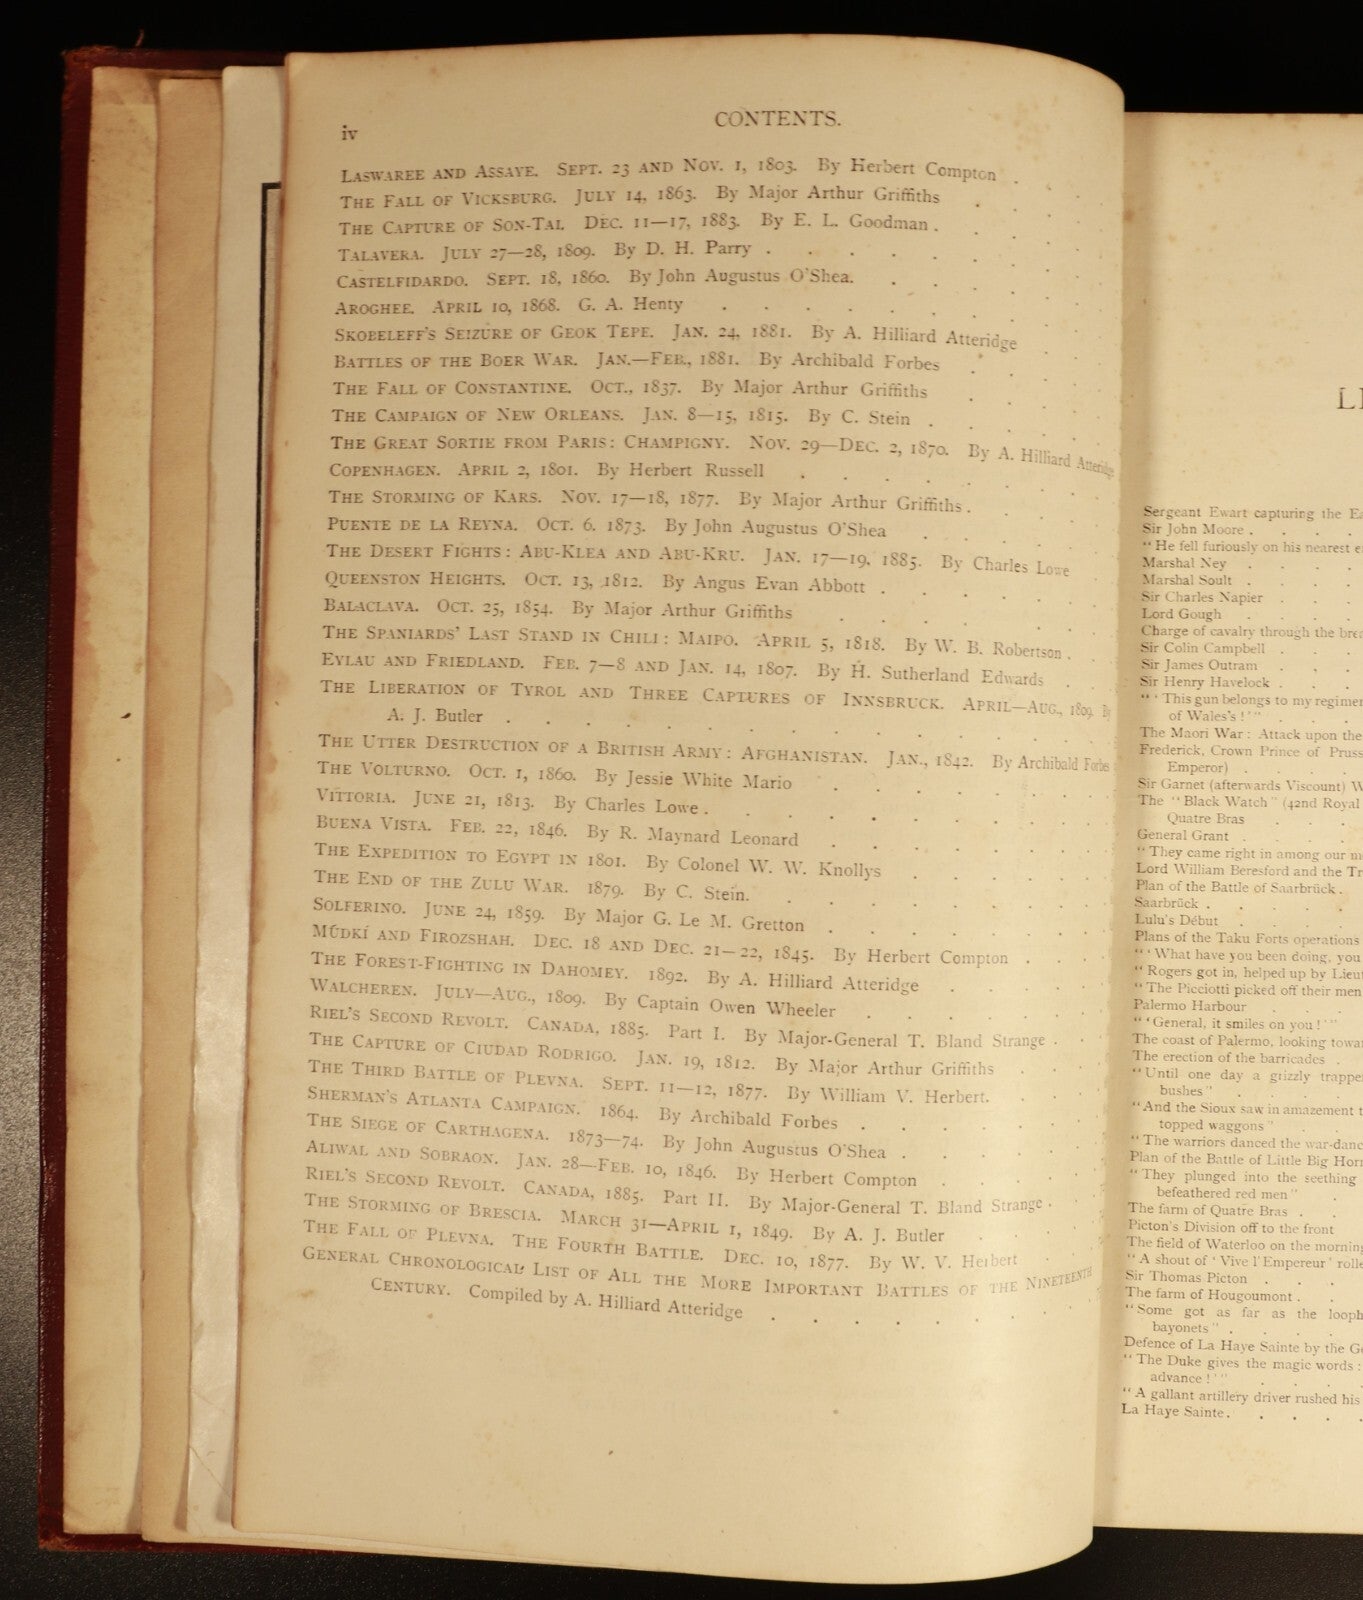 iv
CONTENTS.
LASWAREE AND ASSAYE. SEPT. 23 AND NOV. 1, 1803. By Herbert Compton .
THE FALL OF VICKSBURG. JULY 14, 1863. By Major Arthur Griffiths
THE CAPTURE OF SON-TAI. DEC. 11—17, 1883. By E. L. Goodman .
TALAVERA. JULY 27—28, 1809. By D. H. Parry .
CASTELFIDARDO. SEPT. 18, 1860. By John Augustus O'Shea.
AROGHEE. APRIL 10, 1868. G. A. Henty
SKOBELEFF'S SEIZURE OF GEOK TEPE. JAN. 24, 1881. By A. Hilliard Atteridge
BATTLES OF THE BOER WAR. JAN.—FEB., 1881. By Archibald Forbes
THE FALL OF CONSTANTINE. OCT., 1837. By Major Arthur Griffiths
THE CAMPAIGN OF NEW ORLEANS. JAN. 8—15, 1815. By C. Stein .
THE GREAT SORTIE FROM PARIS: CHAMPIGNY. NOV. 29—DEC. 2, 1870. By A. Hilliard Atteridge
COPENHAGEN. APRIL 2, 1801. By Herbert Russell
THE STORMING OF KARS. NOV. 17—18, 1877. By Major Arthur Griffiths .
PUENTE DE LA REYNA. OCT. 6. 1873. By John Augustus O'Shea
THE DESERT FIGHTS: ABU-KLEA AND ABU-KRU. JAN. 17—19, 1885. By Charles Lowe
QUEENSTON HEIGHTS. OCT. 13, 1812. By Angus Evan Abbott .
BALACLAVA. OCT. 25, 1854. By Major Arthur Griffiths
THE SPANIARDS' LAST STAND IN CHILI: MAIPO. APRIL 5, 1818. By W. B. Robertson .
EYLAU AND FRIEDLAND. FEB. 7—8 AND JAN. 14, 1807. By H. Sutherland Edwards
THE LIBERATION OF TYROL AND THREE CAPTURES OF INNSBRUCK. APRIL—AUG., 1809. By
A. J. Butler .
THE UTTER DESTRUCTION OF A BRITISH ARMY: AFGHANISTAN. JAN., 1842. By Archibald Forbes
THE VOLTURNO. OCT. 1, 1860. By Jessie White Mario
VITTORIA. JUNE 21, 1813. By Charles Lowe .
BUENA VISTA. FEB. 22, 1846. By R. Maynard Leonard
THE EXPEDITION TO EGYPT IN 1801. By Colonel W. W. Knollys
THE END OF THE ZULU WAR. 1879. By C. Stein.
SOLFERINO. JUNE 24, 1859. By Major G. Le M. Gretton
MŪDKÍ AND FIROZSHAH. DEC. 18 AND DEC. 21—22, 1845. By Herbert Compton .
THE FOREST-FIGHTING IN DAHOMEY. 1892. By A. Hilliard Atteridge
WALCHEREN. JULY—AUG., 1809. By Captain Owen Wheeler
RIEL'S SECOND REVOLT. CANADA, 1885. Part I. By Major-General T. Bland Strange .
THE CAPTURE OF CIUDAD RODRIGO. JAN. 19, 1812. By Major Arthur Griffiths
THE THIRD BATTLE OF PLEVNA. SEPT. 11—12, 1877. By William V. Herbert.
SHERMAN'S ATLANTA CAMPAIGN. 1864. By Archibald Forbes
THE SIEGE OF CARTHAGENA. 1873—74. By John Augustus O'Shea .
ALIWAL AND SOBRAON. JAN. 28—FEB. 10, 1846. By Herbert Compton
RIEL'S SECOND REVOLT. CANADA, 1885. Part II. By Major-General T. Bland Strange .
THE STORMING OF BRESCIA. MARCH 31—APRIL 1, 1849. By A. J. Butler
THE FALL OF PLEVNA. THE FOURTH BATTLE. DEC. 10, 1877. By W. V. Herbert
GENERAL CHRONOLOGICAL LIST OF ALL THE MORE IMPORTANT BATTLES OF THE NINETEENTH
CENTURY. Compiled by A. Hilliard Atteridge
Sergeant Ewart capturing the
Sir John Moore .
"He fell furiously on his nearest
Marshal Ney
Marshal Soult .
Sir Charles Napier
Lord Gough
Charge of cavalry through the
Sir Colin Campbell .
Sir James Outram
Sir Henry Havelock .
"'This gun belongs to my
of Wales's!'"
The Maori War: Attack upon the
Frederick, Crown Prince of
Emperor) .
Sir Garnet (afterwards Viscount)
The "Black Watch" (42nd Royal
Quatre Bras
General Grant .
"They came right in among our
Lord William Beresford and the
Plan of the Battle of Saarbrück .
Saarbrück .
Lulu's Début
Plans of the Taku Forts operations
"'What have you been doing, you
"Rogers got in, helped up by
"The Picciotti picked off their men
Palermo Harbour
"'General, it smiles on you!'"
The coast of Palermo, looking
The erection of the barricades .
"Until one day a grizzly
bushes"
"And the Sioux saw in amazement
topped waggons"
"The warriors danced the
Plan of the Battle of Little Big
"They plunged into the seething
befeathered red men"
The farm of Quatre Bras .
Picton's Division off to the front
The field of Waterloo on the
"A shout of 'Vive l'Empereur'
Sir Thomas Picton
The farm of Hougoumont .
"Some got as far as the
bayonets" .
Defence of La Haye Sainte by the
"The Duke gives the magic words:
advance!'"
"A gallant artillery driver rushed his
La Haye Sainte .